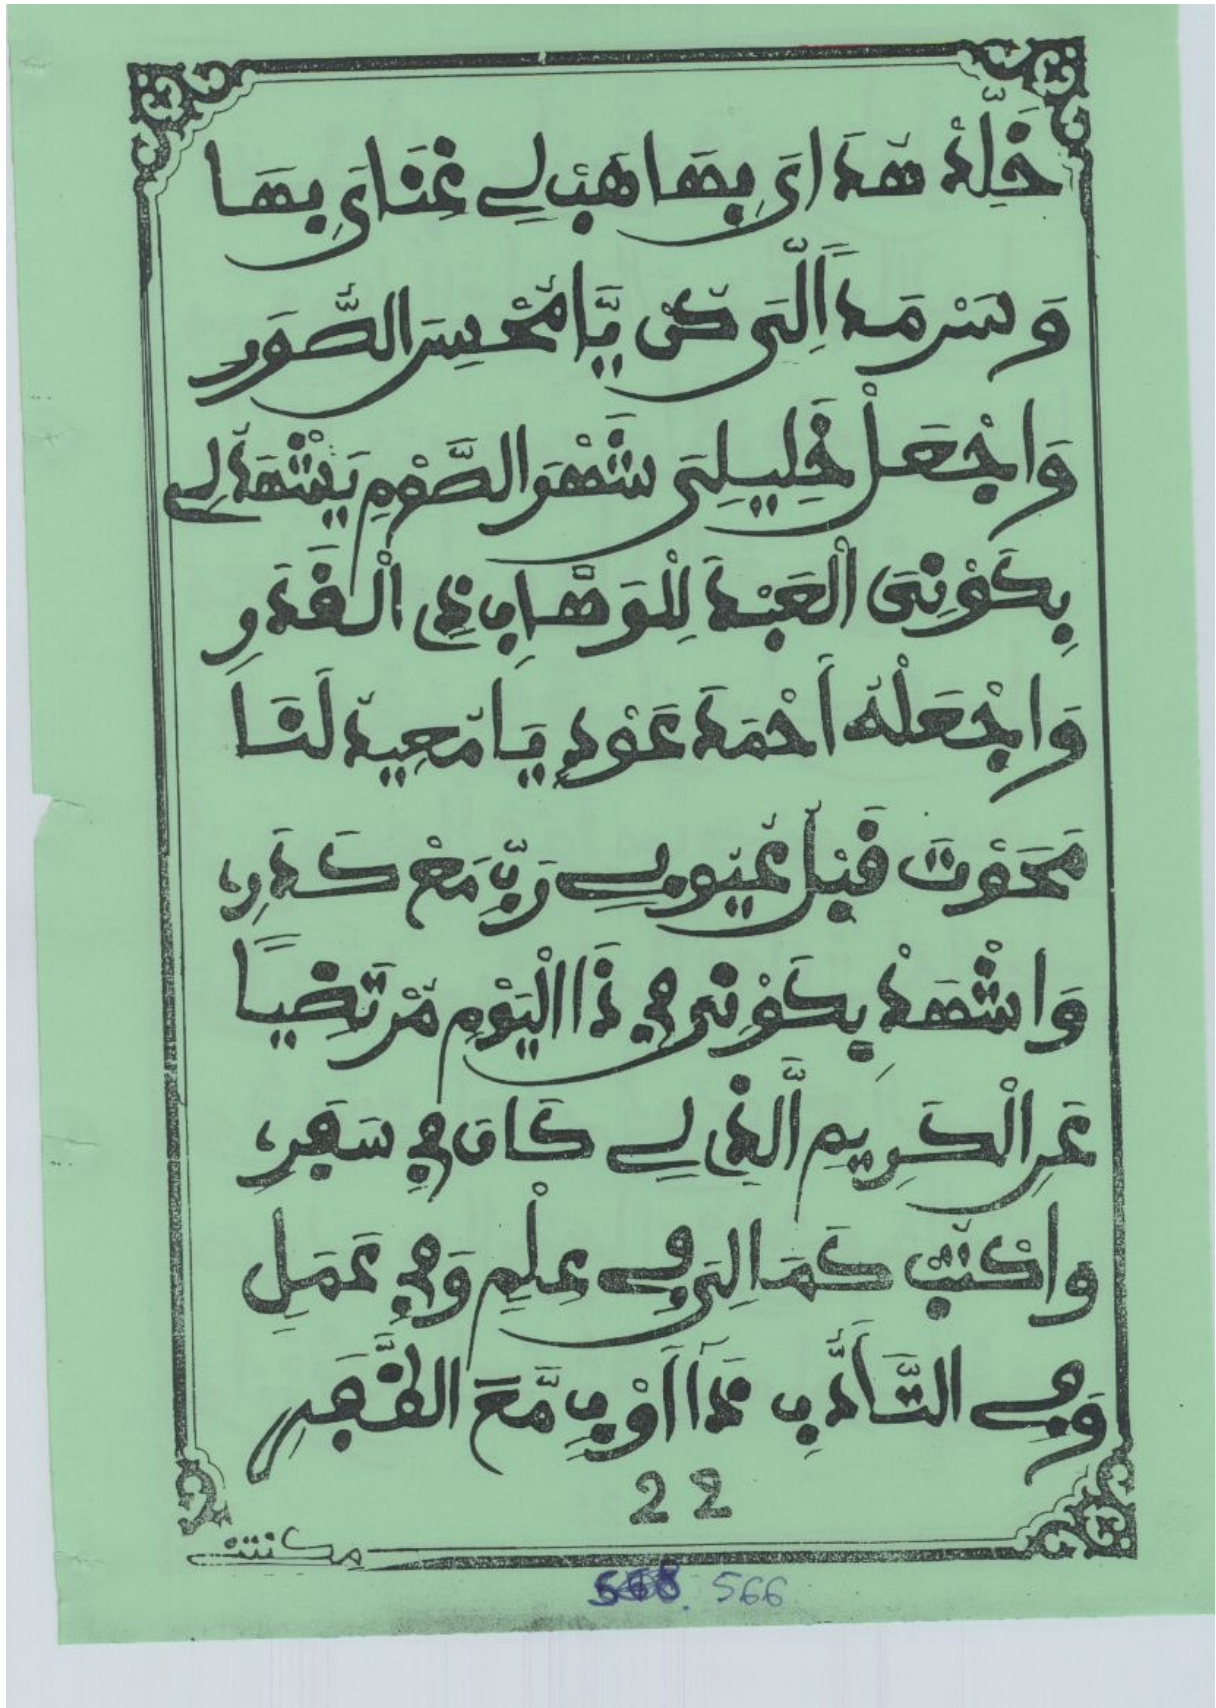 خَلِّدْ هُدَايَ بِهَا هَبْ لِي غِنَايَ بِهَا
وَسَرْمَدًا لِّيَ كُن يَا مُحْسِنَ الصُّوَرِ
وَاجْعَلْ خَلِيلِيَ شَهْرَ الصَّوْمِ يَشْهَدُ لِي
بِكَوْنِيَ الْعَبْدَ لِلْوَهَّابِ ذِي الْقَدَرِ
وَاجْعَلْهُ أَحْمَدَ عَوْدٍ يَا مُعِيدُ لَنَا
مَحَوْتَ قَبْلُ عُيُوبِي رَبِّ مَعْ كَدَرِ
وَاشْهَدْ بِكَوْنِي فِي ذَا الْيَوْمِ مُرْتَضِيًا
عَنِ الْكَرِيمِ الَّذِي لِي كَانَ فِي سَفَرِ
وَاكْتُبْ كَمَالِيَ فِي عِلْمٍ وَفِي عَمَلِ
وَفِي التَّأَدُّبِ
22
مكتبة
566